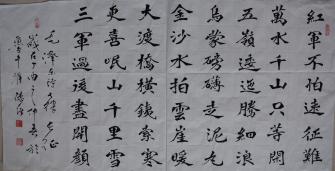 紅軍不怕遠征難
萬水千山只等閒
五嶺逶迤騰細浪
烏蒙磅礴走泥丸
金沙水拍雲崖暖
大渡橋橫鐵索寒
更喜岷山千里雪
三軍過後盡開顏
毛澤東詩